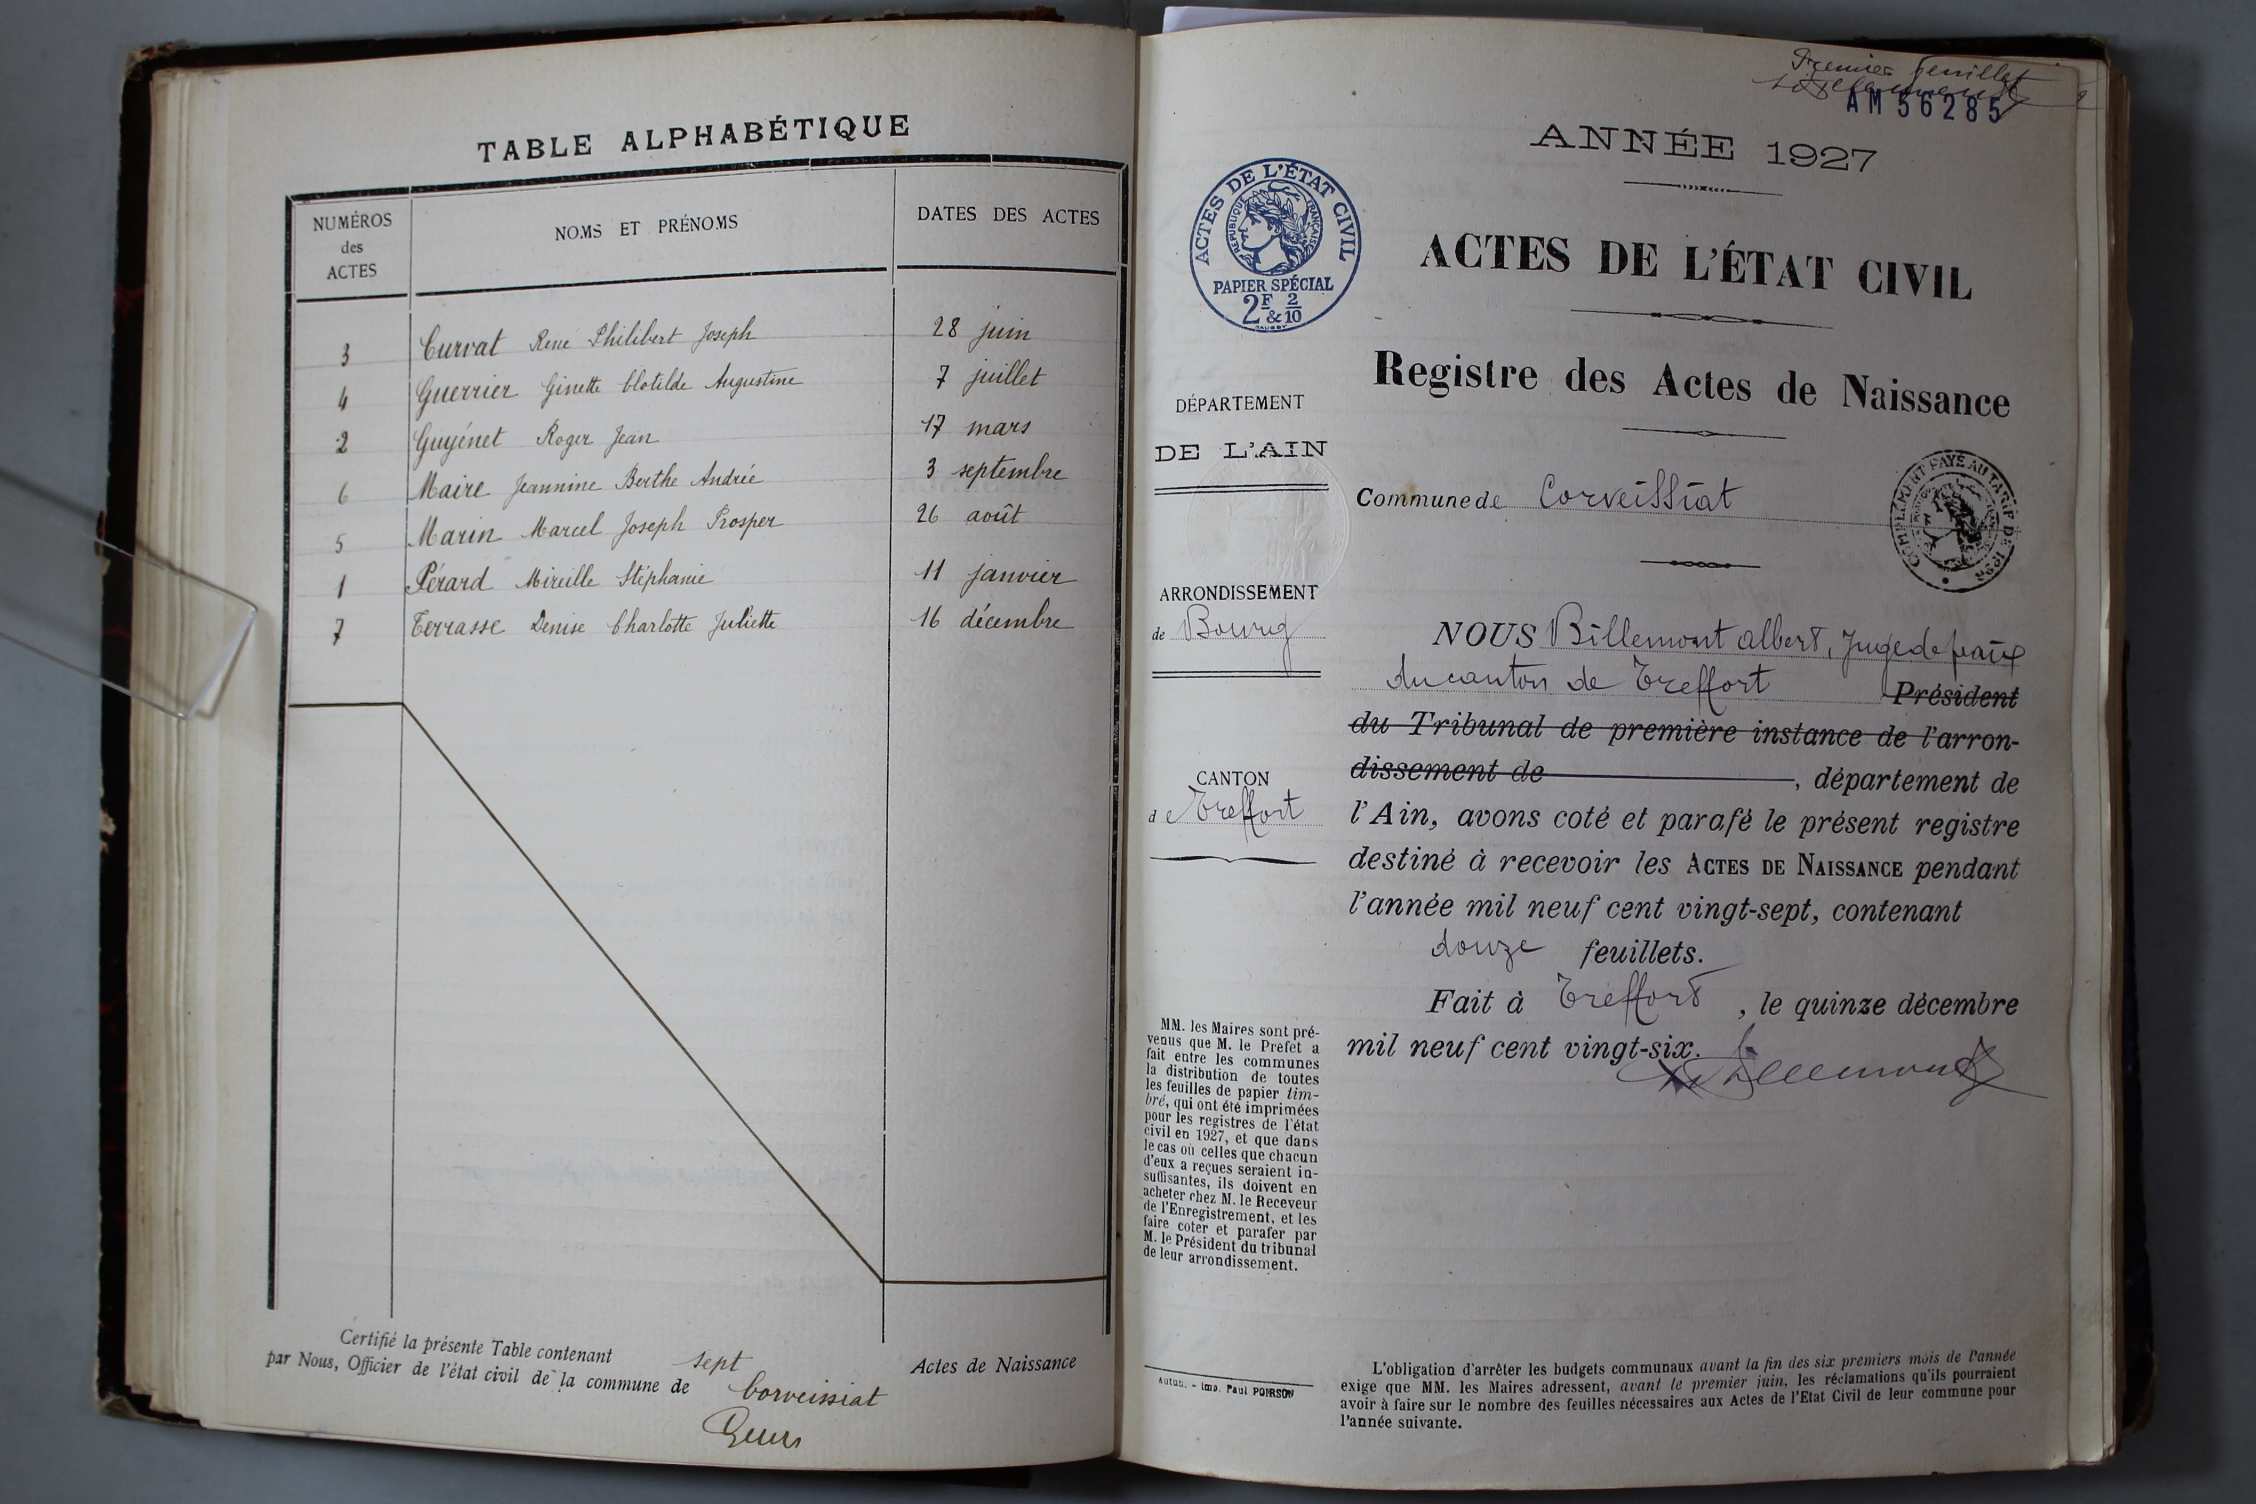 TABLE ALPHABÉTIQUE
NUMÉROS
des
ACTES
NOMS ET PRÉNOMS
DATES DES ACTES
3 Curvat René Philibert Joseph 28 juin
4 Guerrier Ginette Clotilde Augustine 7 juillet
2 Guyénet Roger Jean 17 mars
6 Maire Jeannine Berthe Andrée 3 septembre
5 Marin Marcel Joseph Prosper 26 août
1 Pérard Mireille Stéphanie 11 janvier
7 Terrasse Denise Charlotte Juliette 16 décembre
Certifié la présente Table contenant sept Actes de Naissance
par Nous, Officier de l'état civil de la commune de Corveissiat
Premier feuillet
AM 56285
ANNÉE 1927
ACTES DE L'ÉTAT CIVIL
RÉPUBLIQUE FRANÇAISE
PAPIER SPÉCIAL
2F & 2/10
ACTES DE L'ÉTAT CIVIL
Registre des Actes de Naissance
DÉPARTEMENT
DE L'AIN
Commune de Corveissiat
COMPLÉMENT PAYÉ AU TARIF DE 1926
ARRONDISSEMENT
de Bourg
CANTON
de Treffort
NOUS Billemont Albert, Juge de paix
du canton de Treffort Président
du Tribunal de première instance de l'arron-
dissement de , département de
l'Ain, avons coté et parafé le présent registre
destiné à recevoir les ACTES DE NAISSANCE pendant
l'année mil neuf cent vingt-sept, contenant
douze feuillets.
Fait à Treffort, le quinze décembre
mil neuf cent vingt-six.
Billemont
MM. les Maires sont pré-
venus que M. le Prefet a
fait entre les communes
la distribution de toutes
les feuilles de papier tim-
bré, qui ont été imprimées
pour les registres de l'état
civil en 1927, et que dans
le cas où celles que chacun
d'eux a reçues seraient in-
suffisantes, ils doivent en
acheter chez M. le Receveur
de l'Enregistrement, et les
faire coter et parafer par
M. le Président du tribunal
de leur arrondissement.
Autun. - Imp. Paul POIRSON
L'obligation d'arrêter les budgets communaux avant la fin des six premiers mois de l'année
exige que MM. les Maires adressent, avant le premier juin, les réclamations qu'ils pourraient
avoir à faire sur le nombre des feuilles nécessaires aux Actes de l'Etat Civil de leur commune pour
l'année suivante.